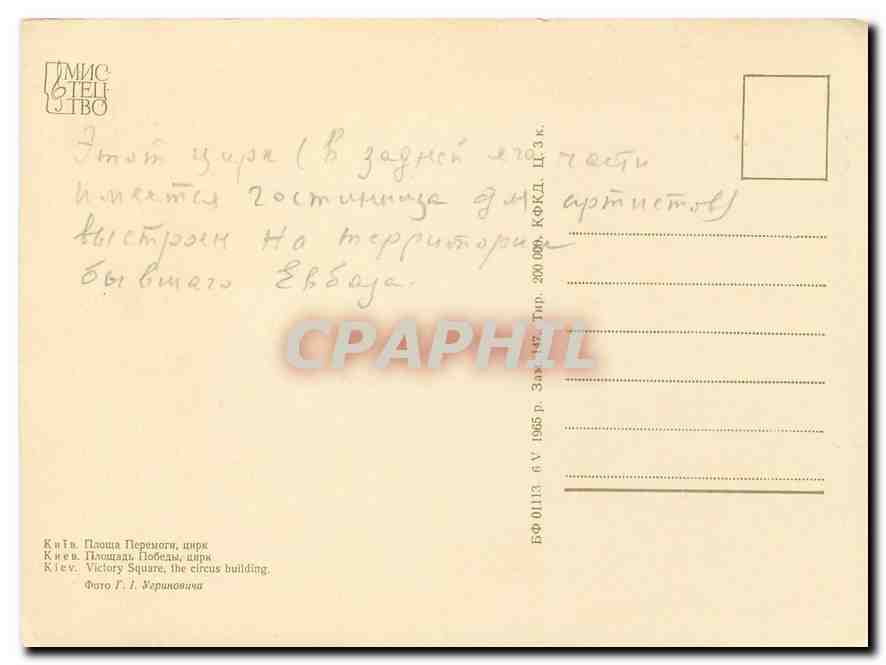 МИС-
ТЕЦ-
ТВО
Этот цирк (в задней его части
имеется гостинница для артистов)
выстроен на территории
бывшего Евбаза.
CPAPHIL
БФ 01113 6 V 1965 р. Зам. 147. Тир. 200 000. КФКД. Ц. 3 к.
Київ. Площа Перемоги, цирк
Киев. Площадь Победы, цирк
Kiev. Victory Square, the circus building.
Фото Г. І. Угриновича